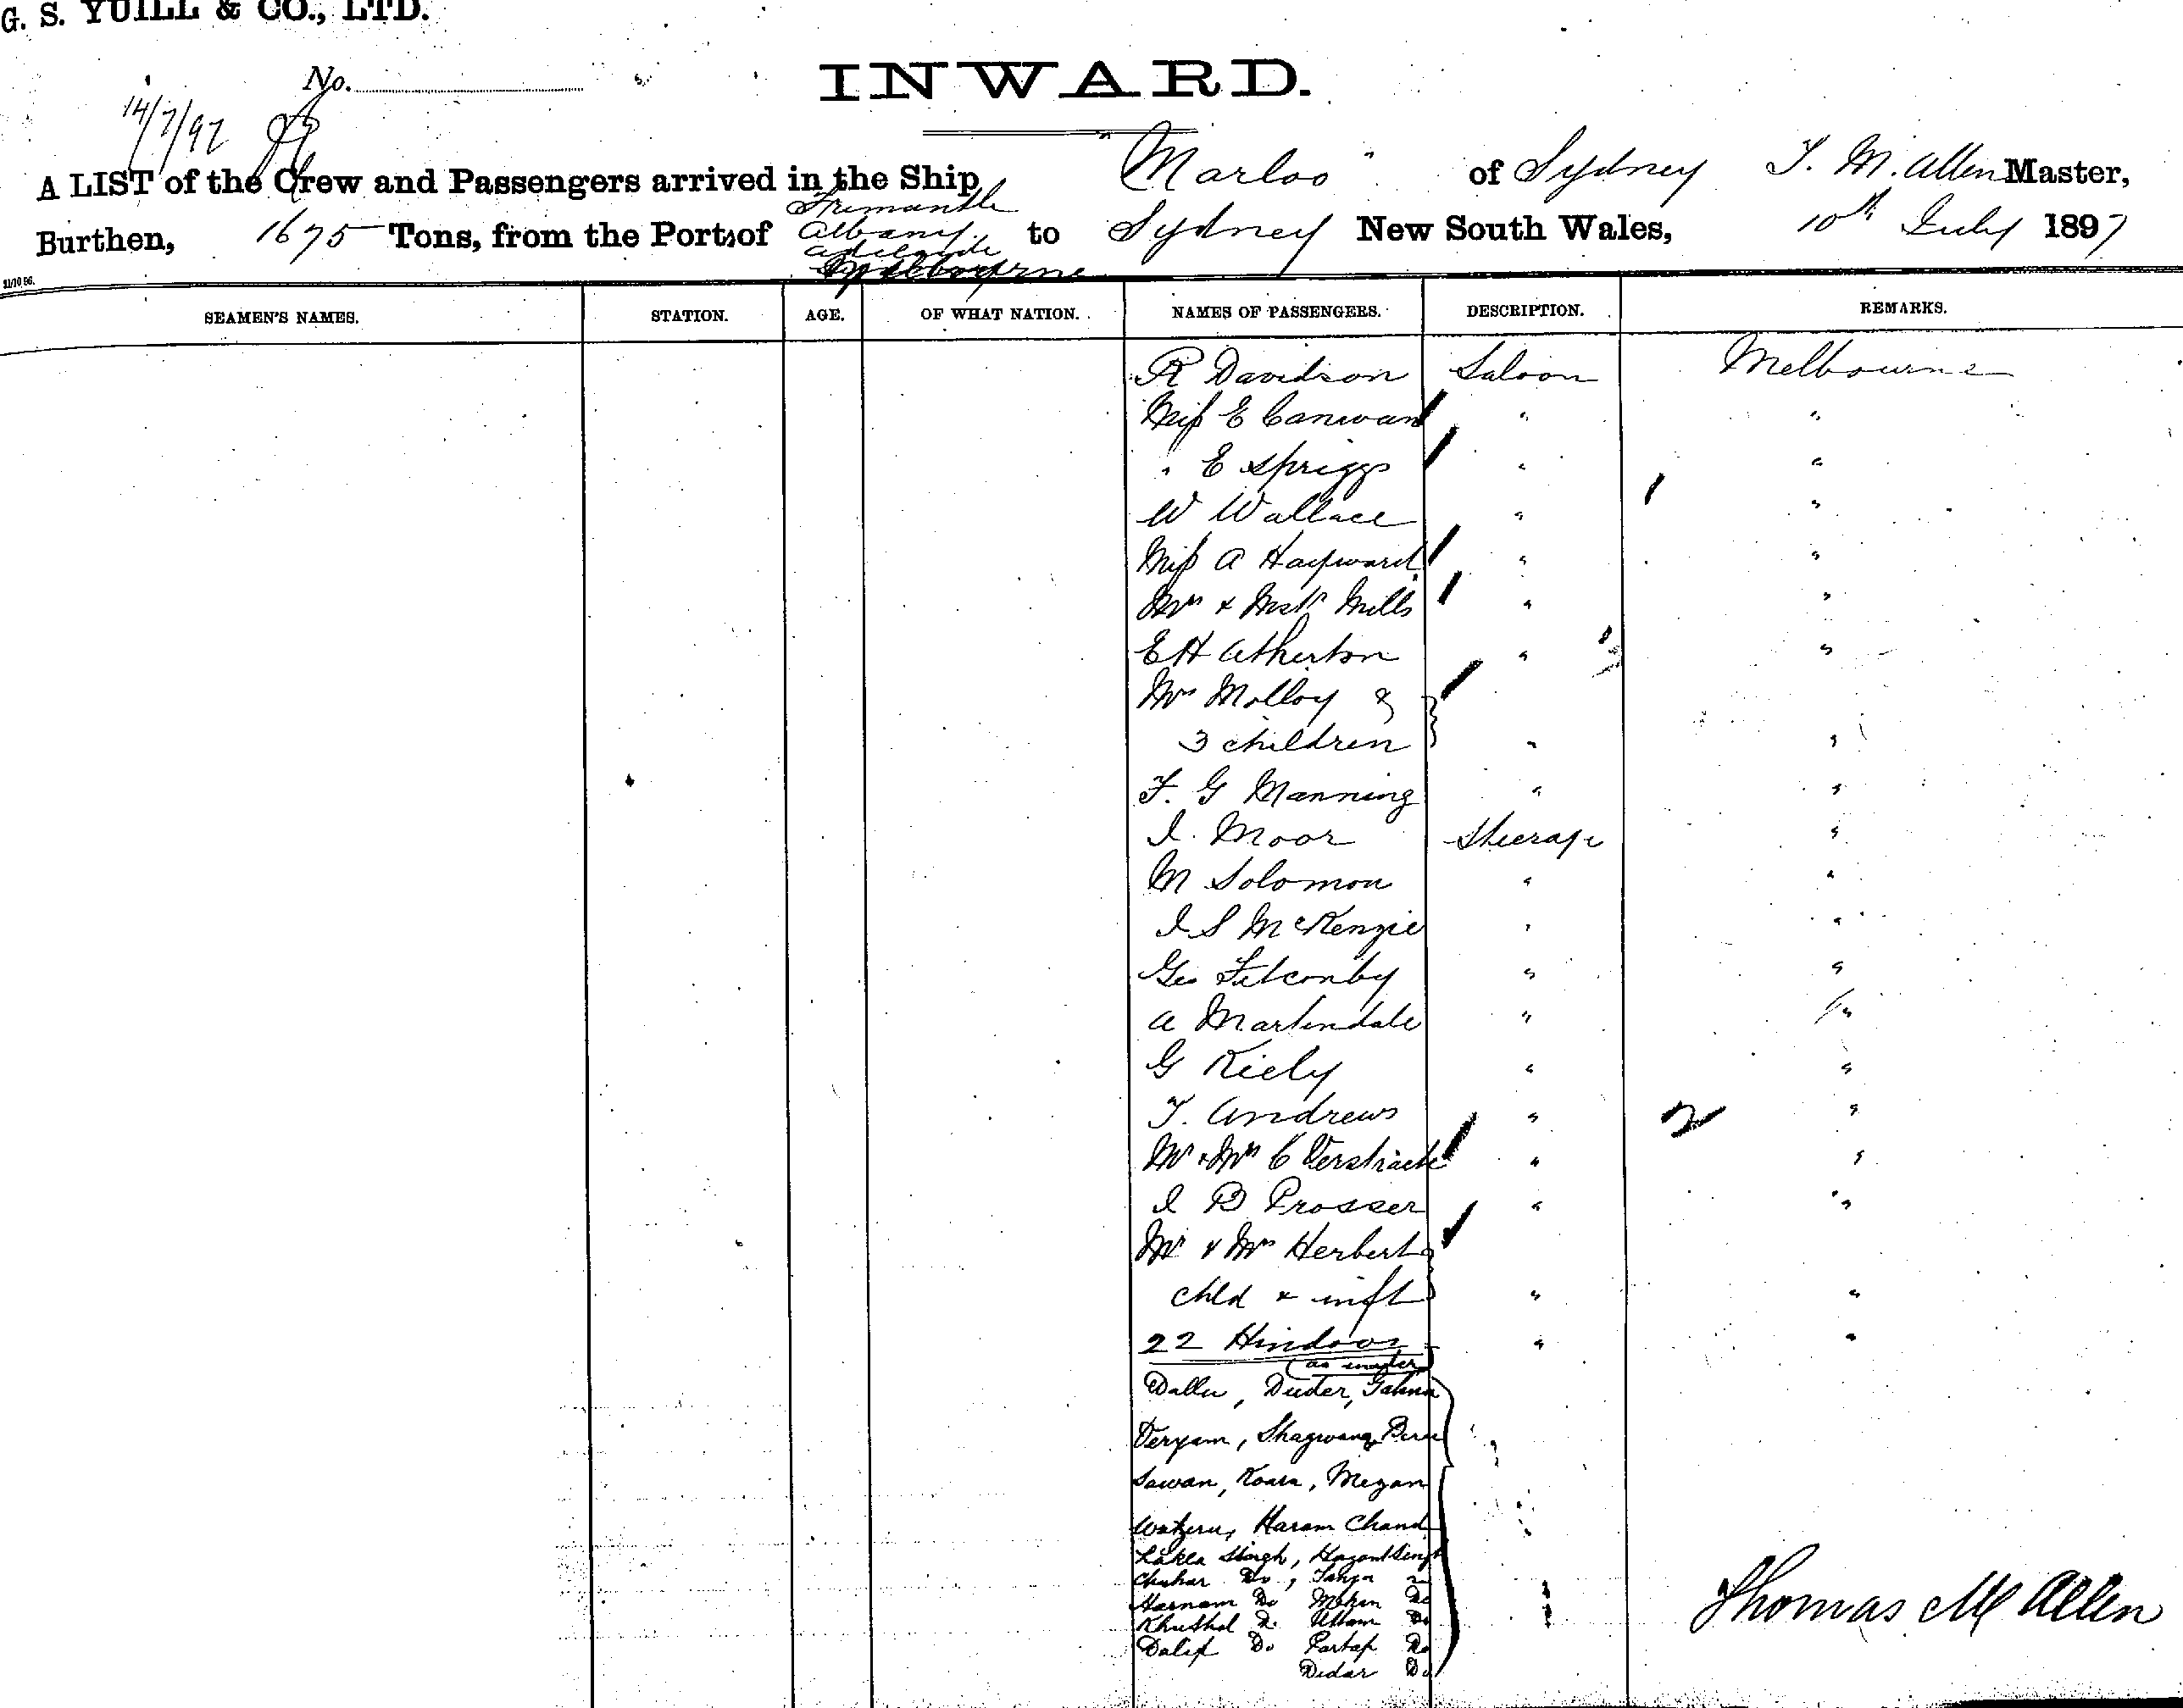 G. S. YUILL & CO., LTD.
No.
INWARD.
14/7/97
A LIST of the Crew and Passengers arrived in the Ship "Marloo" of Sydney T. M. Allen Master,
Fremantle
Burthen, 1675 Tons, from the Ports of Albany to Sydney New South Wales, 10th July 1897
Adelaide
Melbourne
SEAMEN'S NAMES. STATION. AGE. OF WHAT NATION. NAMES OF PASSENGERS. DESCRIPTION. REMARKS.
R Davidson Saloon Melbourne
Miss E Canwan " "
" E Spriggs " "
W Wallace " "
Miss A Hayward " "
Mrs & Mstr Mills " "
E H Atherton " "
Mrs Molloy &
3 children " "
F. G Manning " "
I. Moor Steerage "
M Solomon " "
I S McKenzie " "
Geo " "
A Martindale " "
G Kiely " "
T. Andrews " 2 "
Mr & Mrs C Verstraete " "
I B Prosser " "
Mr & Mrs Herbert
chld & inft " "
22 Hindoos " "
(as under)
Dallu, Duder,
Deryam, Shagwana,
Sawan, Megan
Haram Chand
Singh, Singh
Do,
Harnam Do Do
Do Uttam Do
Dalip Do Partap Do
Didar Do
Thomas M Allen